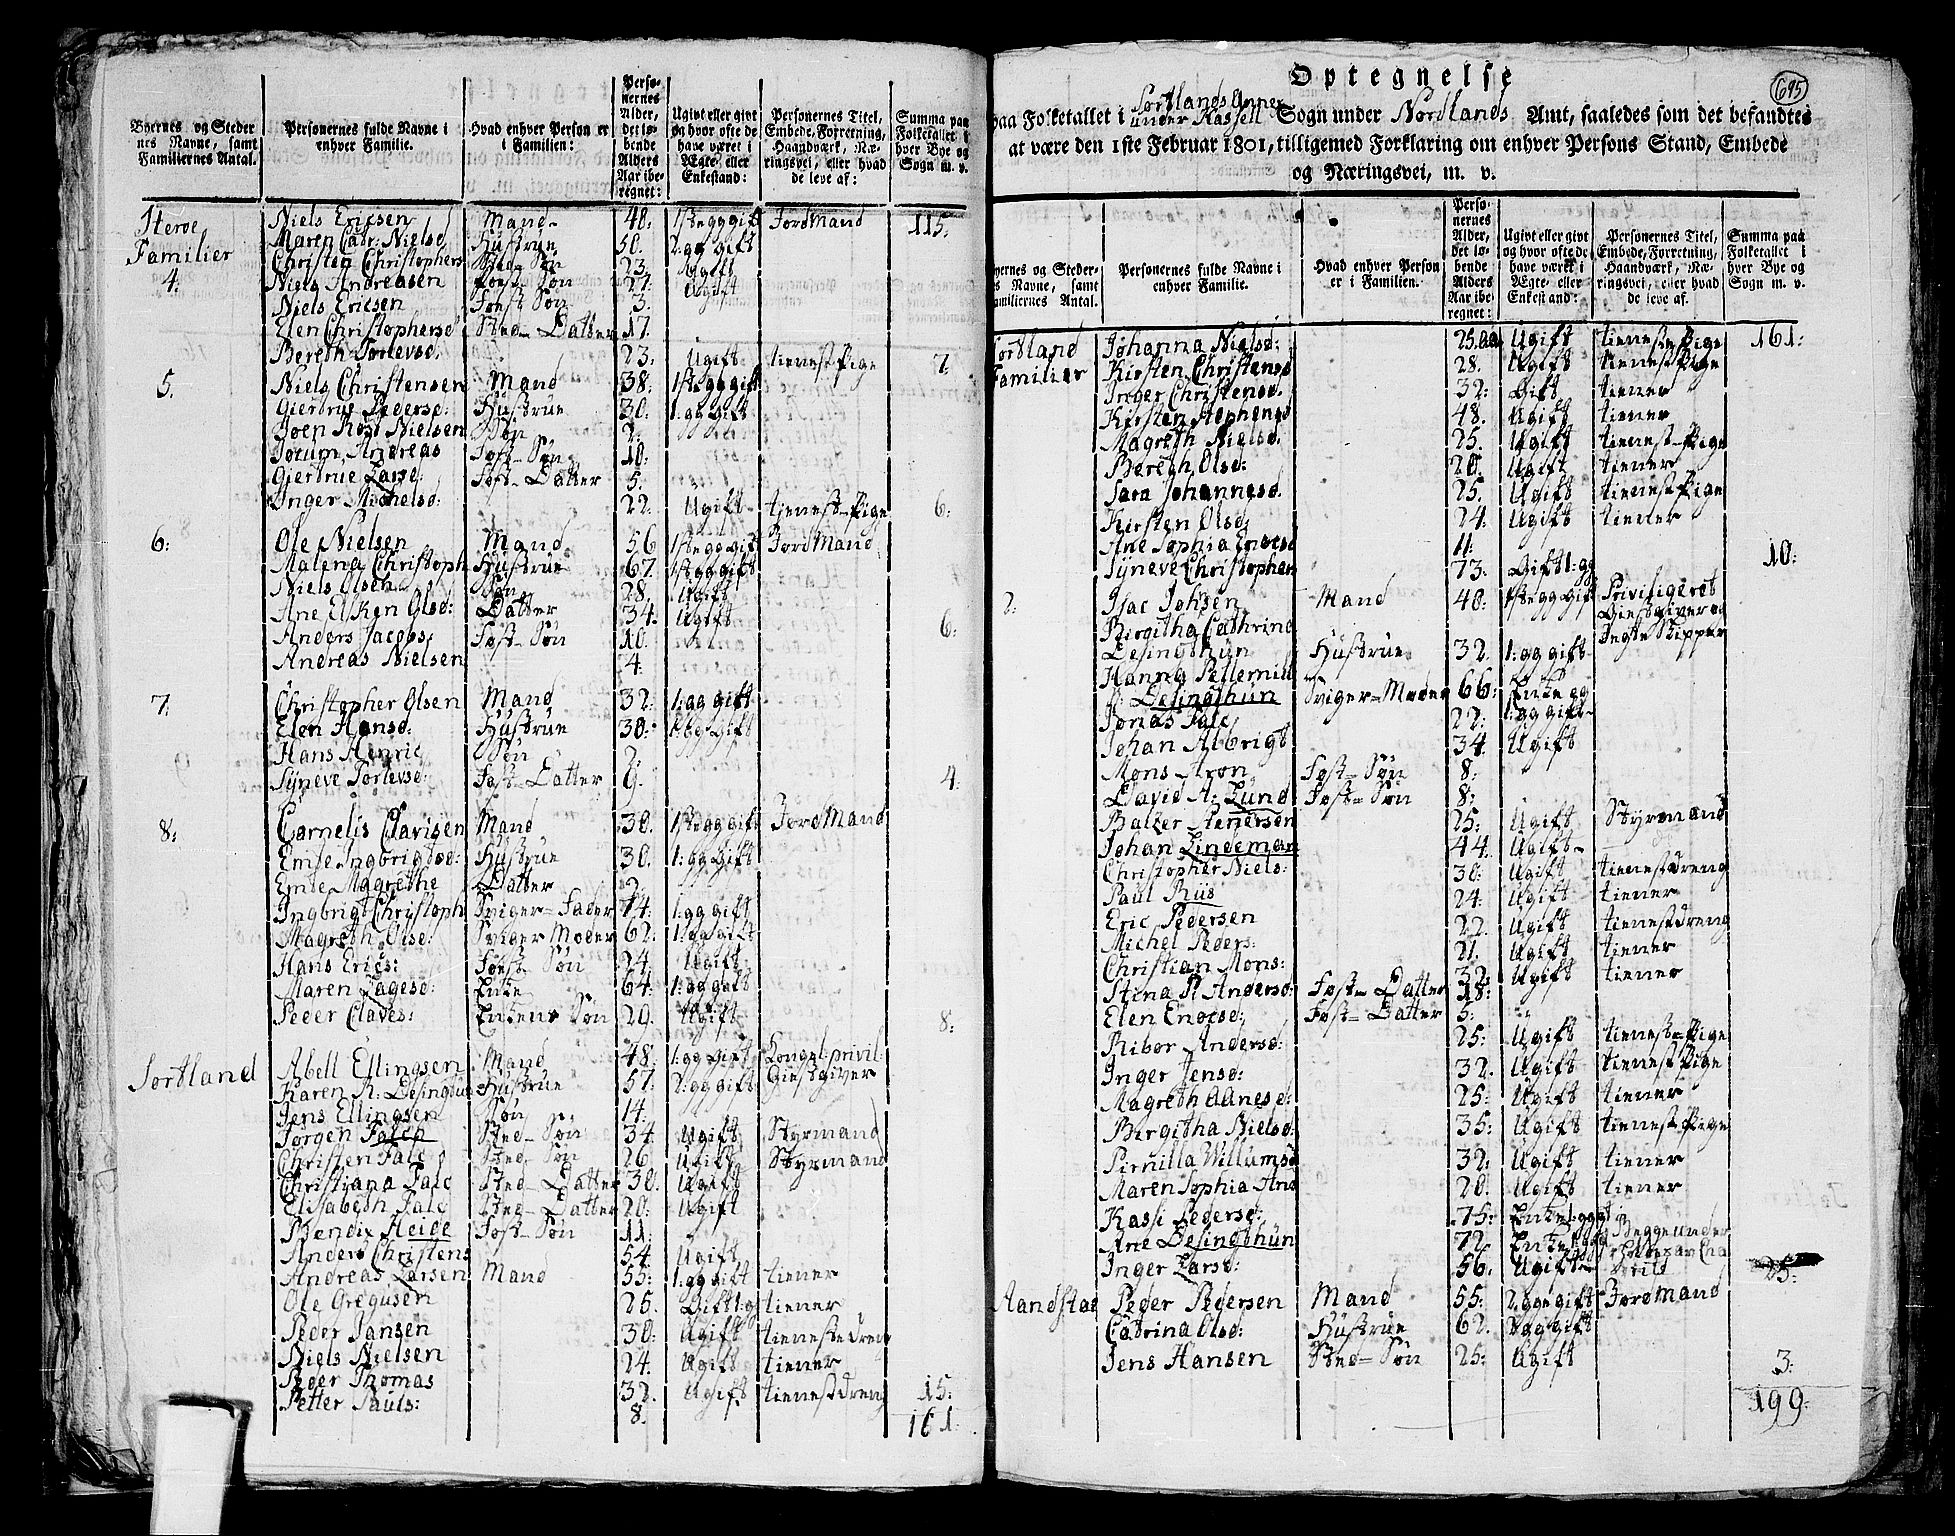 Byernes og Steder
nes Navne, samt
Familiernes Antal.
Personernes fulde Navne i
enhver Familie.
Hvad enhver Person er
i Familien:
Perso-
nernes
Alder,
det lø-
bende
Alders
Aar ibe-
regnet:
Ugivt eller givt
og hvor ofte de
have været i
Ægte- eller
Enkestand:
Personernes Titel,
Embede, Forretning,
Haandværk, Næ-
ringsvei, eller hvad
de leve af:
Summa paa
Folketallet i
hver Bye og
Sogn m. v.
Familier
4. Niels Ericsen Mand 40: 1ste gg gift JordMand 115:
Maren Cadr: Nielsd Hustrue 50. 2: gg gift
Christen Christophers Sted Søn 23. Ugift
Niels Andreasen Søn 27. Ugift
Niels Ericsen Fost Søn 3.
Elen Christophersd Sted-Datter 17.
Bereth Torlevsd. 23. Ugift: tienest Pige 7.
5. Niels Christensen Mand 38. 1ste gg gift
Giertrue Pedersd: Hustrue 30: 1: gg Gift
Joen Nielsen Søn 2.
Jocum Andreas Fost-Søn 10:
Giertrue Larsd: Fost-Datter 5.
Inger Michelsd: 22. Ugift tienest-Pige 6:
6: Ole Nielsen Mand 56 1ste gg gift JordMand
Malena Christoph Hustrue 67. 1ste gg gift
Niels Olsen Søn 28. Ugift
Ane Elken Olsd: Datter 34. Ugift
Anders Jacobs: Fost-Søn 10. 6:
Andreas Nielsen 4.
7. Christopher Olsen Mand 32: 1: gg gift
Elen Hansd: Hustrue 30: gg Gift
Hans Henric Søn 2.
Syneve Torlevsd: Fost-Datter 9. 4.
8: Cornelis Clavisen Mand 30. 1ste gg gift JordMand
Emte Ingbrigtsd: Hustrue 30. 1: gg Gift
Emte Magrethe Datter 2.
Ingbrigt Christoph Sviger-Fader 74: 1: gg gift
Magreth Olsd: Sviger Moder 62: 1: gg gift
Hans Erics: Søn 24. Ugift
Maren Lagesd: Enke 64: 1: gg gift
Peder Claves: Enkens Søn 20. Ugift 8:
Sortland Abell Ellingsen Mand 48: 1: gg Gift Kongel: privil:
Karen R: Desingtun Hustrue 57: 2: gg gift Giestgiver
Jens Ellingsen Søn 14.
Jørgen Falch Sted-Søn 34. Ugift Styrmand
Christen Falc Sted Søn 26 Ugift Styrmand
Christiana Falc Sted-Datter 30. Ugift
Elisabeth Falc Sted-Datter 20: Ugift
Bendix Heide Fost-Søn 11:
Anders Christens 54. Ugift
Andreas Larsen Mand 55: 1: gg gift tiener
Ole Gregusen 25. Gift 1: g tiener
Peder Jansen 30: Ugift tienestedreng
Niels Nielsen 24. Ugift tiener
Peder Thomas 32. Ugift tienestdreng 15:
Petter Pauls: 8. 161:
695
Optegnelse
paa Folketallet i Sortlands Annex under Hassell Sogn under Nordlands Amt, saaledes som det befandtes
at være den 1ste Februar 1801, tilligemed Forklaring om enhver Persons Stand, Embede
og Næringsvei, m. v.
Byernes og Steder-
s Navne, samt
amiliernes Antal.
Personernes fulde Navne i
enhver Familie.
Hvad enhver Person
er i Familien.
Perso-
nernes
Alder,
det lø-
bende
Alders
Aar ibe-
regnet:
Ugivt eller givt
og hvor ofte de
have været i
Ægte- eller
Enkestand:
Personernes Titel,
Embede, Forretning,
Haandværk, Næ-
ringsvei, eller hvad
de leve af.
Summa paa
Folketallet i
hver Bye og
Sogn m. v.
Sortland Johanna Nielsd: 25. Ugift tieneste Pige 161:
Familier Kirsten Christensd 28. Ugift tienest Pige
Inger Christensd: 32: Gift tiener
Kirsten Stephensd 48. Ugift tiener
Magreth Nielsd. 25. Ugift tienest-Pige
Bereth Olsd: 20. Ugift tiener
Sara Johannesd. 25. Ugift tienest Pige
Kirsten Olsd: 24: Ugift tiener
Ane Sophia Enocsd 11:
Syneve Christophers 73: Gift 1: gg 10:
2. Isac Johsen Mand 40: 1ste gg Gift Priviligeret
Birgitha Cathrina Giestgiver og
Desingthun Hustrue 32. 1: gg gift Jegte Skipper
Hanna Pellernill
P: Desingthun Sviger-Moder 66: Enke og
Jonas Falc 22: 1: gg gift
Johan Albrigt 34. Ugift
Mons Aron Fost-Søn 8:
David A: Lund Fost-Søn 8:
Baltzer 25: Ugift Styrmand
Johan Lindeman 44. Ugift
Christopher Niels: 30: Ugift tienestdreng
Paul Riis 24. Ugift tiener
Eric Pedersen 22. Ugift tienestdreng
Michel Peders: 21. Ugift tiener
Christian Mons: 32: Ugift tiener
Stina P. Andersd: Fost-Datter 18:
Elen Enocsd: Fost-Datter 5:
Ribor Andersd: 25: Ugift tienest-Pige
Inger Jensd: 32. Ugift tienest Pige
Magreth Aanesd: 25: Ugift tiener
Birgitha Nielsd: 35: Ugift tienest Pige
Pirnilla Willumsd 32: Ugift tiener
Maren Sophia And 20. Ugift tiener
Kassi Pedersd: 75: Enke 1: gg
Ane Desingthun 72. Enke Begge under
Inger Larsd: 56. Ugift 25:
Aandstad Peder Pedersen Mand 55: 2. gg gift JordMand
Cadrina Olsd: Hustrue 62. gg gift
Jens Hansen Sted-Søn 25: Ugift 3:
199.